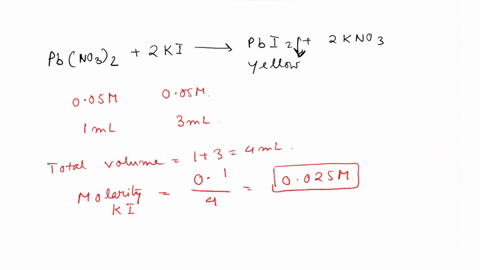 Pb(NO3)2 + 2KI ⟶ PbI2↓ + 2KNO3
yellow
0.05M 0.05M.
1mL 3mL.
Total volume = 1+3 = 4mL.
Molarity KI = 0.1/4 = 0.025M